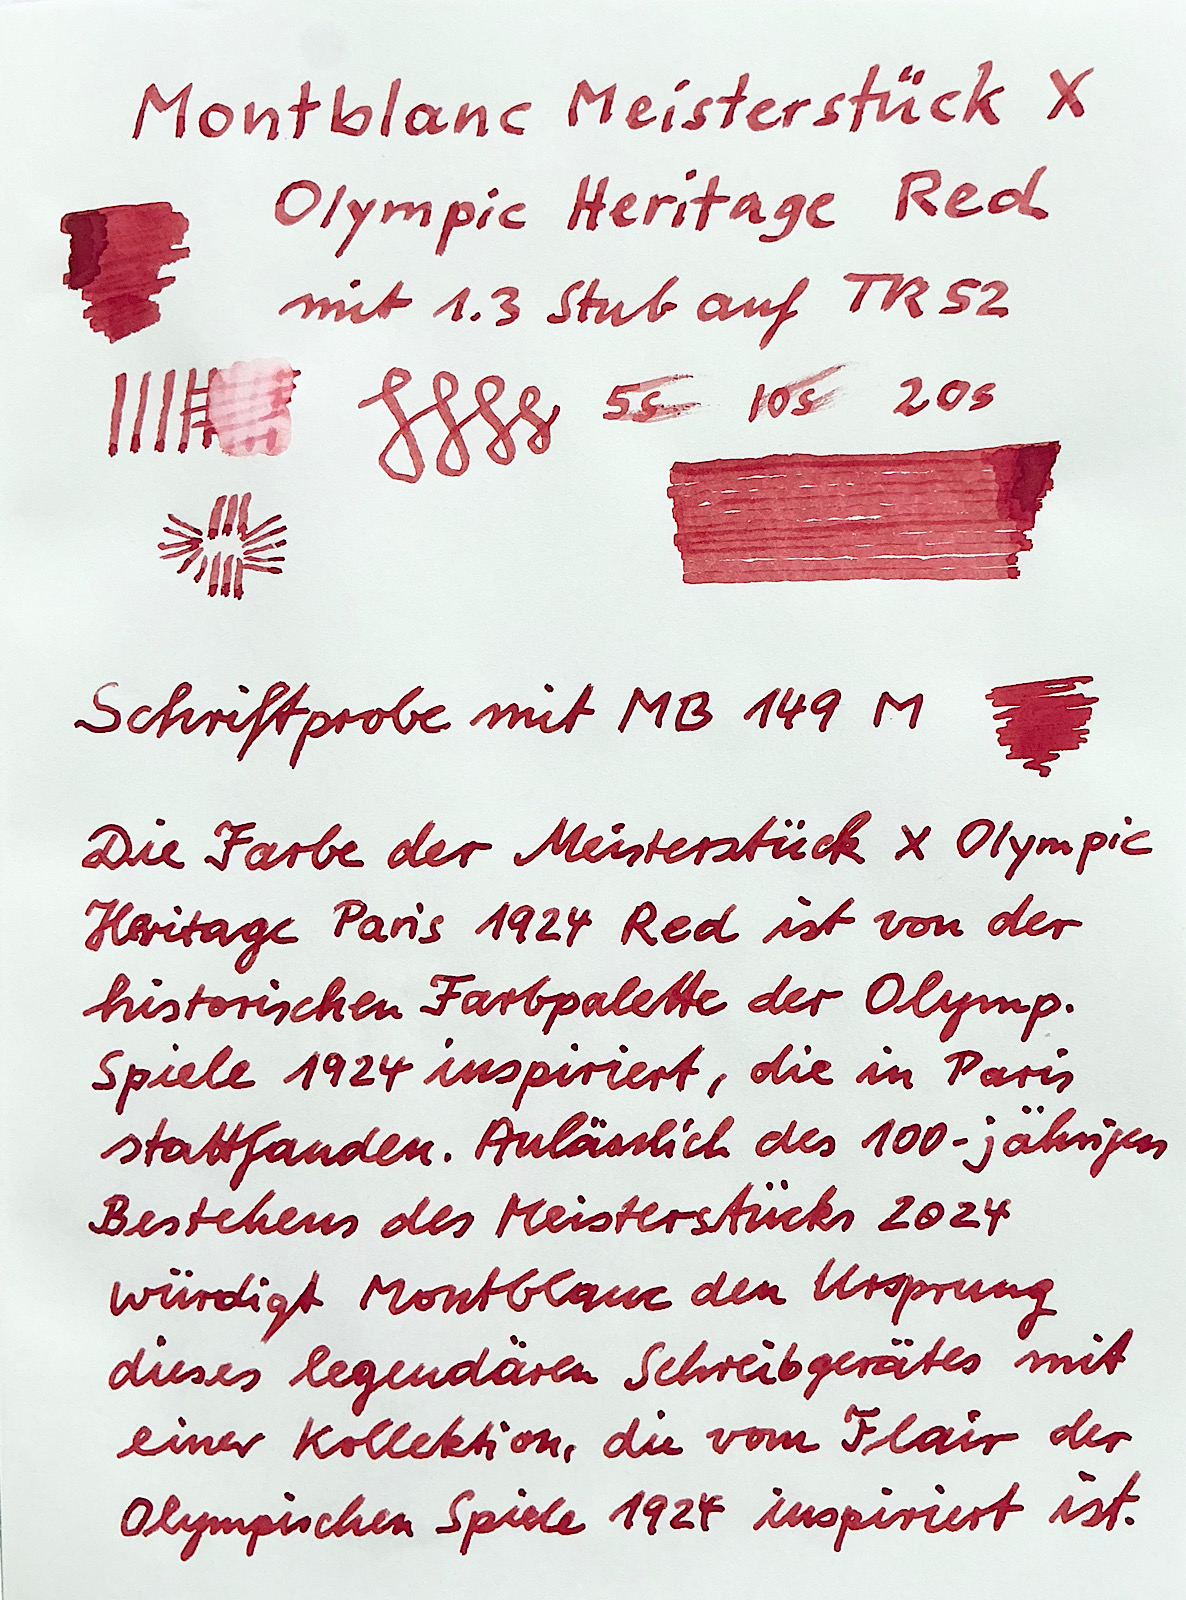 Montblanc Meisterstück X
Olympic Heritage Red
mit 1.3 Stub auf TR 52
5s 10s 20s
Schriftprobe mit MB 149 M
Die Farbe der Meisterstück X Olympic
Heritage Paris 1924 Red ist von der
historischen Farbpalette der Olymp.
Spiele 1924 inspiriert, die in Paris
stattfanden. Anlässlich des 100-jährigen
Bestehens des Meisterstücks 2024
würdigt Montblanc den Ursprung
dieses legendären Schreibgerätes mit
einer Kollektion, die vom Flair der
Olympischen Spiele 1924 inspiriert ist.